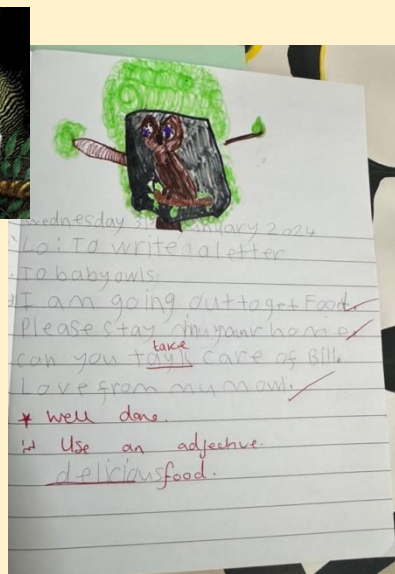 Wednesday 31st January 2024
Lo: To write a letter
To baby owls
I am going out to get Food.
Please stay in your home.
take
can you tayk care of Bill.
Love from mum owl.
* well done.
Use an adjective.
delicious food.